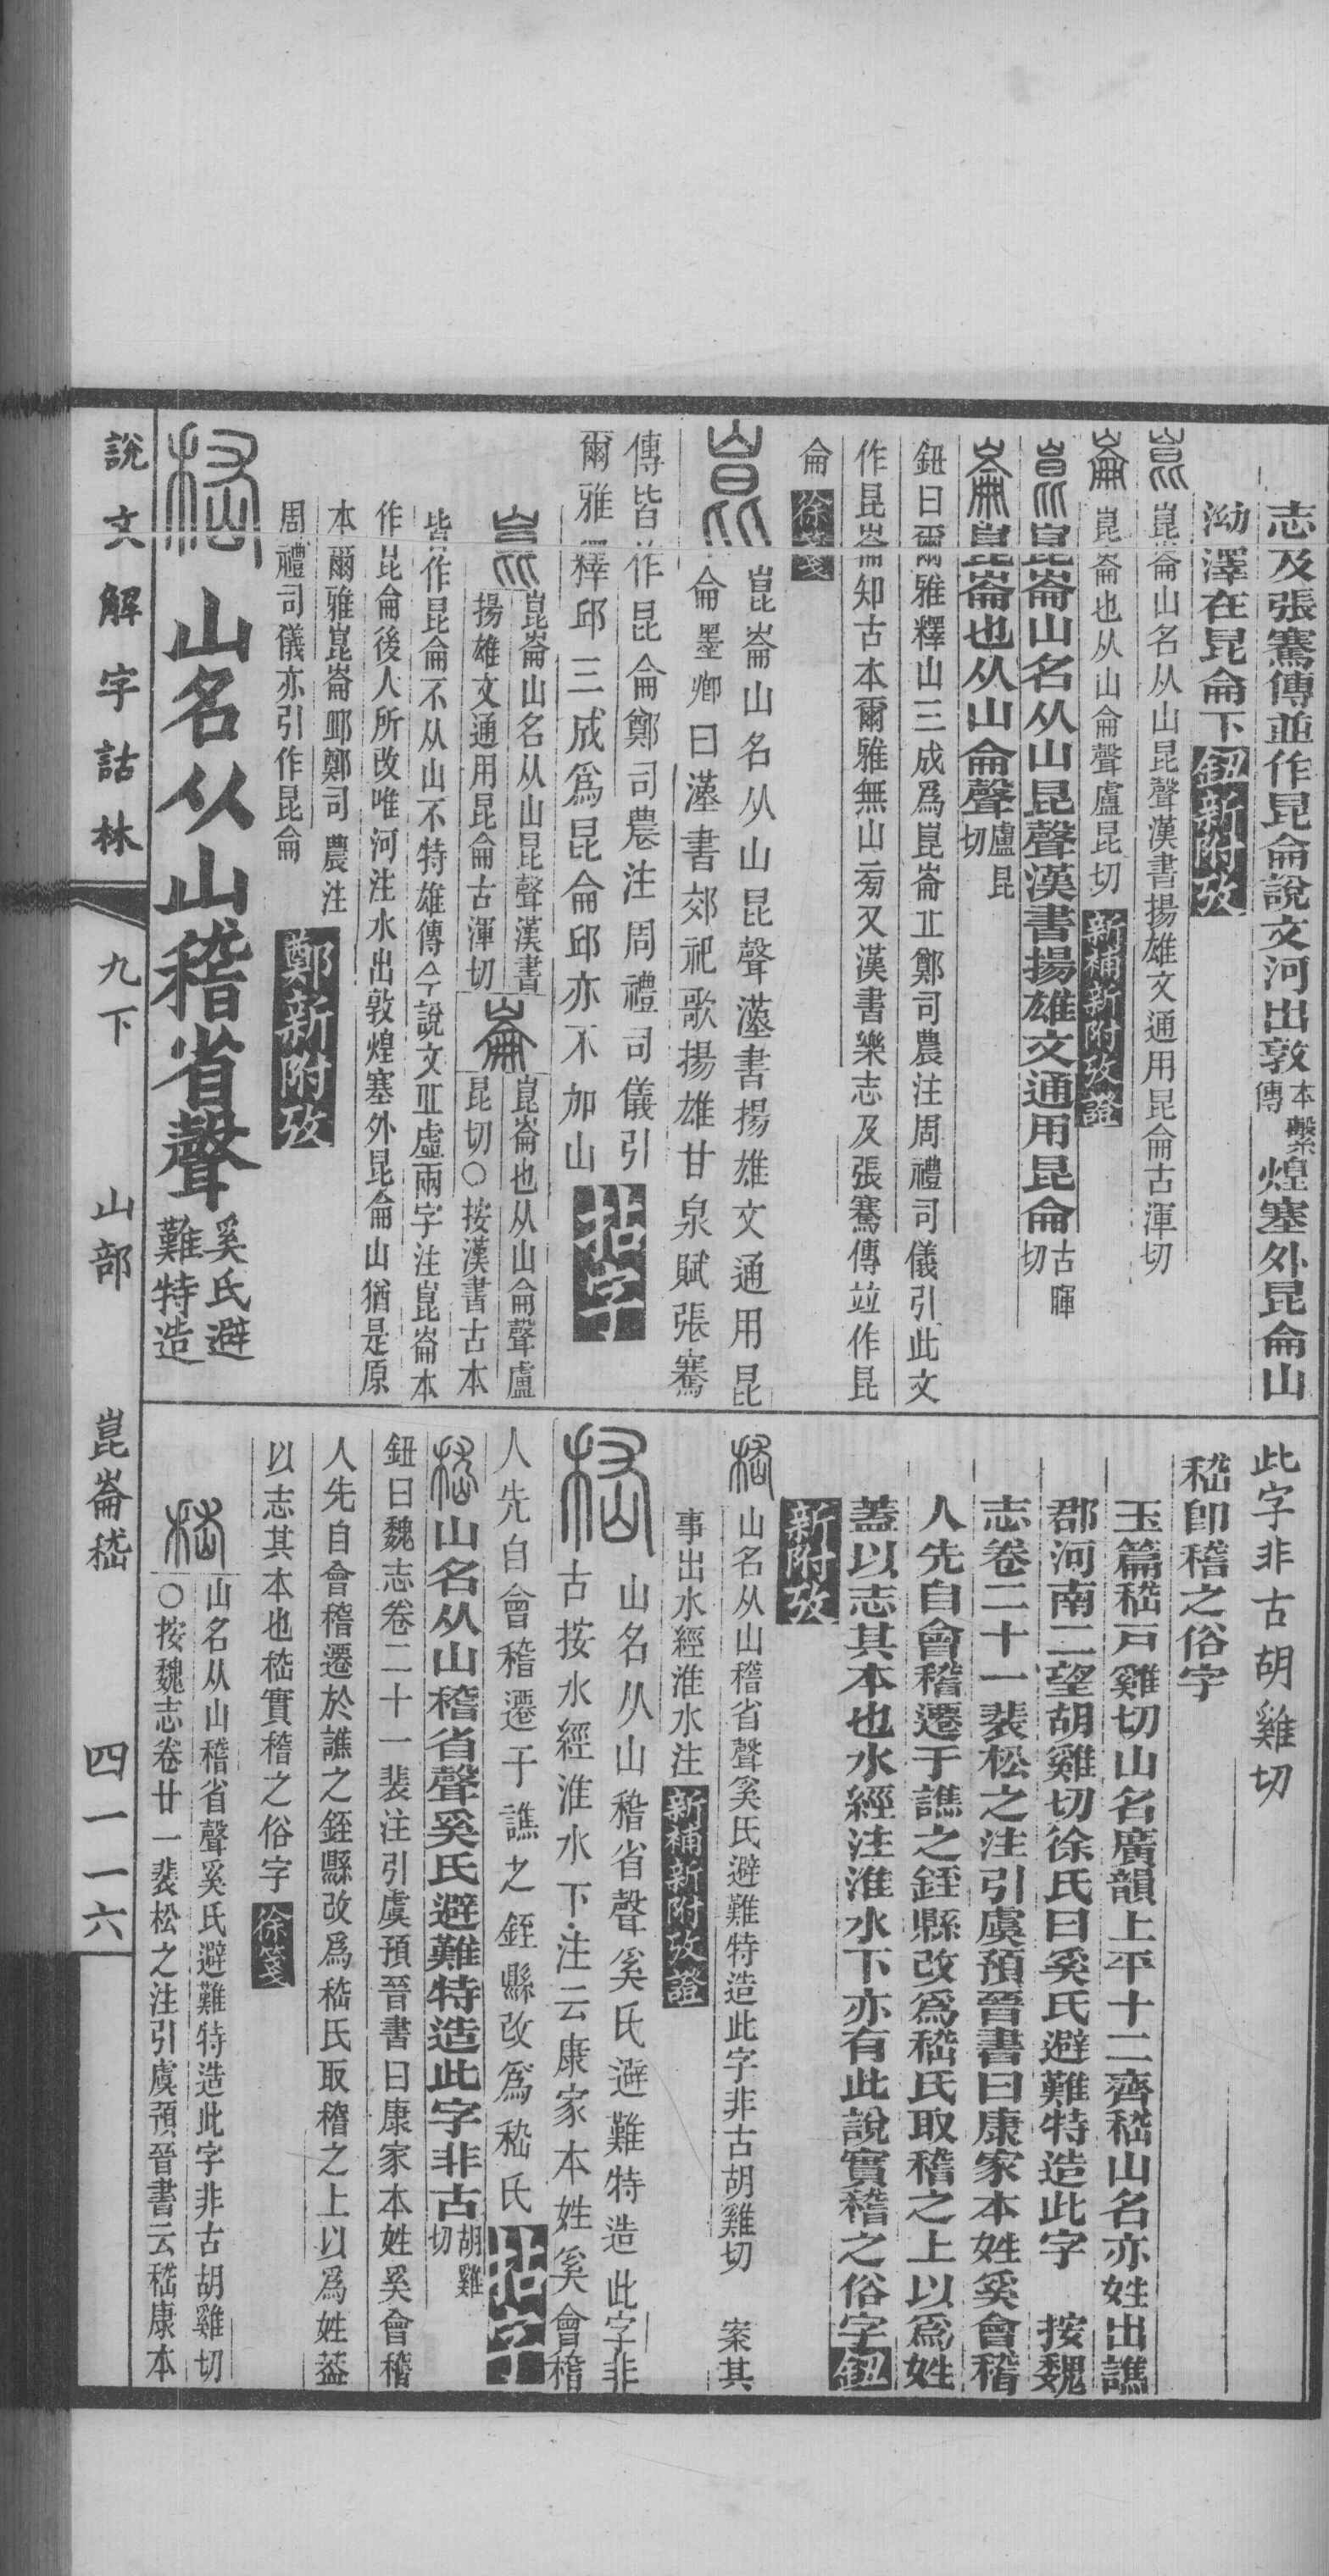 志及張騫傳並作昆侖說文河出敦本槧傳煌塞外昆侖山
泑澤在昆侖下鈕新附攷
崑崙山名从山昆聲漢書揚雄文通用昆侖古渾切
崙崑崙也从山侖聲盧昆切新補新附攷證
崑崑崙山名从山昆聲漢書揚雄文通用昆侖古暉切
崙崑崙也从山侖聲盧昆切
鈕曰爾雅釋山三成爲崑崙丘鄭司農注周禮司儀引此文
作昆崙知古本爾雅無山旁又漢書樂志及張騫傳竝作昆
侖徐箋
崑崑崙山名从山昆聲漢書揚雄文通用昆
侖墨卿曰漢書郊祀歌揚雄甘泉賦張騫
傳皆作昆侖鄭司農注周禮司儀引
爾雅釋邱三成爲昆侖邱亦不加山
崑崑崙山名从山昆聲漢書
揚雄文通用昆侖古渾切
崙崑崙也从山侖聲盧
昆切○按漢書古本
皆作昆侖不从山不特雄傳今說文丘虛兩字注崑崙本
作昆侖後人所改唯河注水出敦煌塞外昆侖山猶是原
本爾雅崑崙邱鄭司農注
周禮司儀亦引作昆侖鄭新附攷
嵇山名从山稽省聲奚氏避
難特造
此字非古胡雞切
嵇卽稽之俗字
玉篇嵇戸雞切山名廣韻上平十二齊嵇山名亦姓出譙
郡河南二望胡雞切徐氏曰奚氏避難特造此字 按魏
志卷二十一裴松之注引虞預晉書曰康家本姓奚會稽
人先自會稽遷于譙之銍縣改爲嵇氏取稽之上以爲姓
蓋以志其本也水經注淮水下亦有此說實稽之俗字鈕
新附攷
嵇山名从山稽省聲奚氏避難特造此字非古胡雞切 案其
事出水經淮水注新補新附攷證
嵇山名从山稽省聲奚氏避難特造此字非
古按水經淮水下注云康家本姓奚會稽
人先自會稽遷于譙之銍縣改爲嵇氏
嵇山名从山稽省聲奚氏避難特造此字非古胡雞切
鈕曰魏志卷二十一裴注引虞預晉書曰康家本姓奚會稽
人先自會稽遷於譙之銍縣改爲嵇氏取稽之上以爲姓葢
以志其本也嵇實稽之俗字徐箋
嵇山名从山稽省聲奚氏避難特造此字非古胡雞切
○按魏志卷廿一裴松之注引虞預晉書云嵇康本
說文解字詁林 九下 山部 崑崙嵇 四一一六